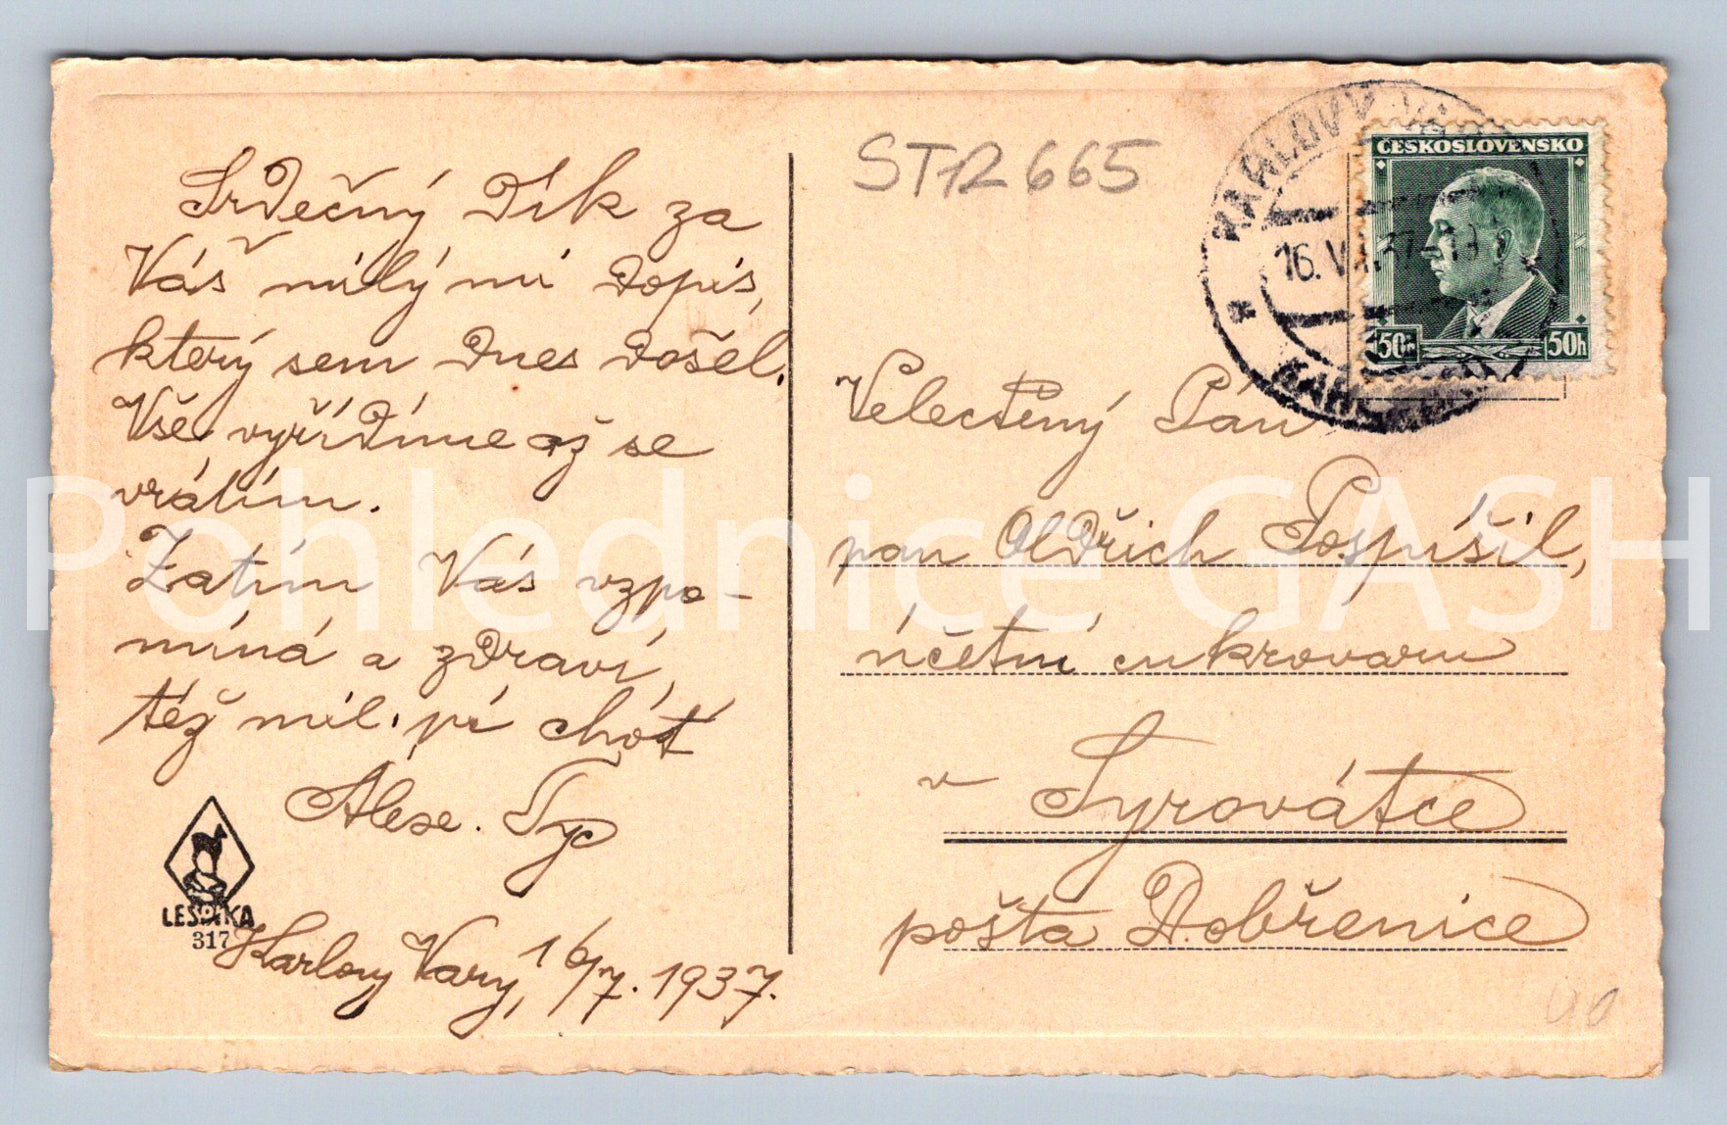 Srdečný Dík za
Váš milý mi Dopis,
který sem Dnes Došel.
Vše vyřídíme až se
vrátím.
Zatím Vás vzpo-
míná a zdraví,
též mil. pí choť
Tyc
LESDIKA
317
Karlovy Vary, 16/7. 1937.
STR 665
KARLOVY VARY
16. VII. 37 - 18
KARLSBAD
ČESKOSLOVENSKO
50h 50h
Velectěný Pán
pan Oldřich Pospíšil,
účetní cukrovaru
v Syrovátce
pošta Dobřenice
Pohlednice GASH